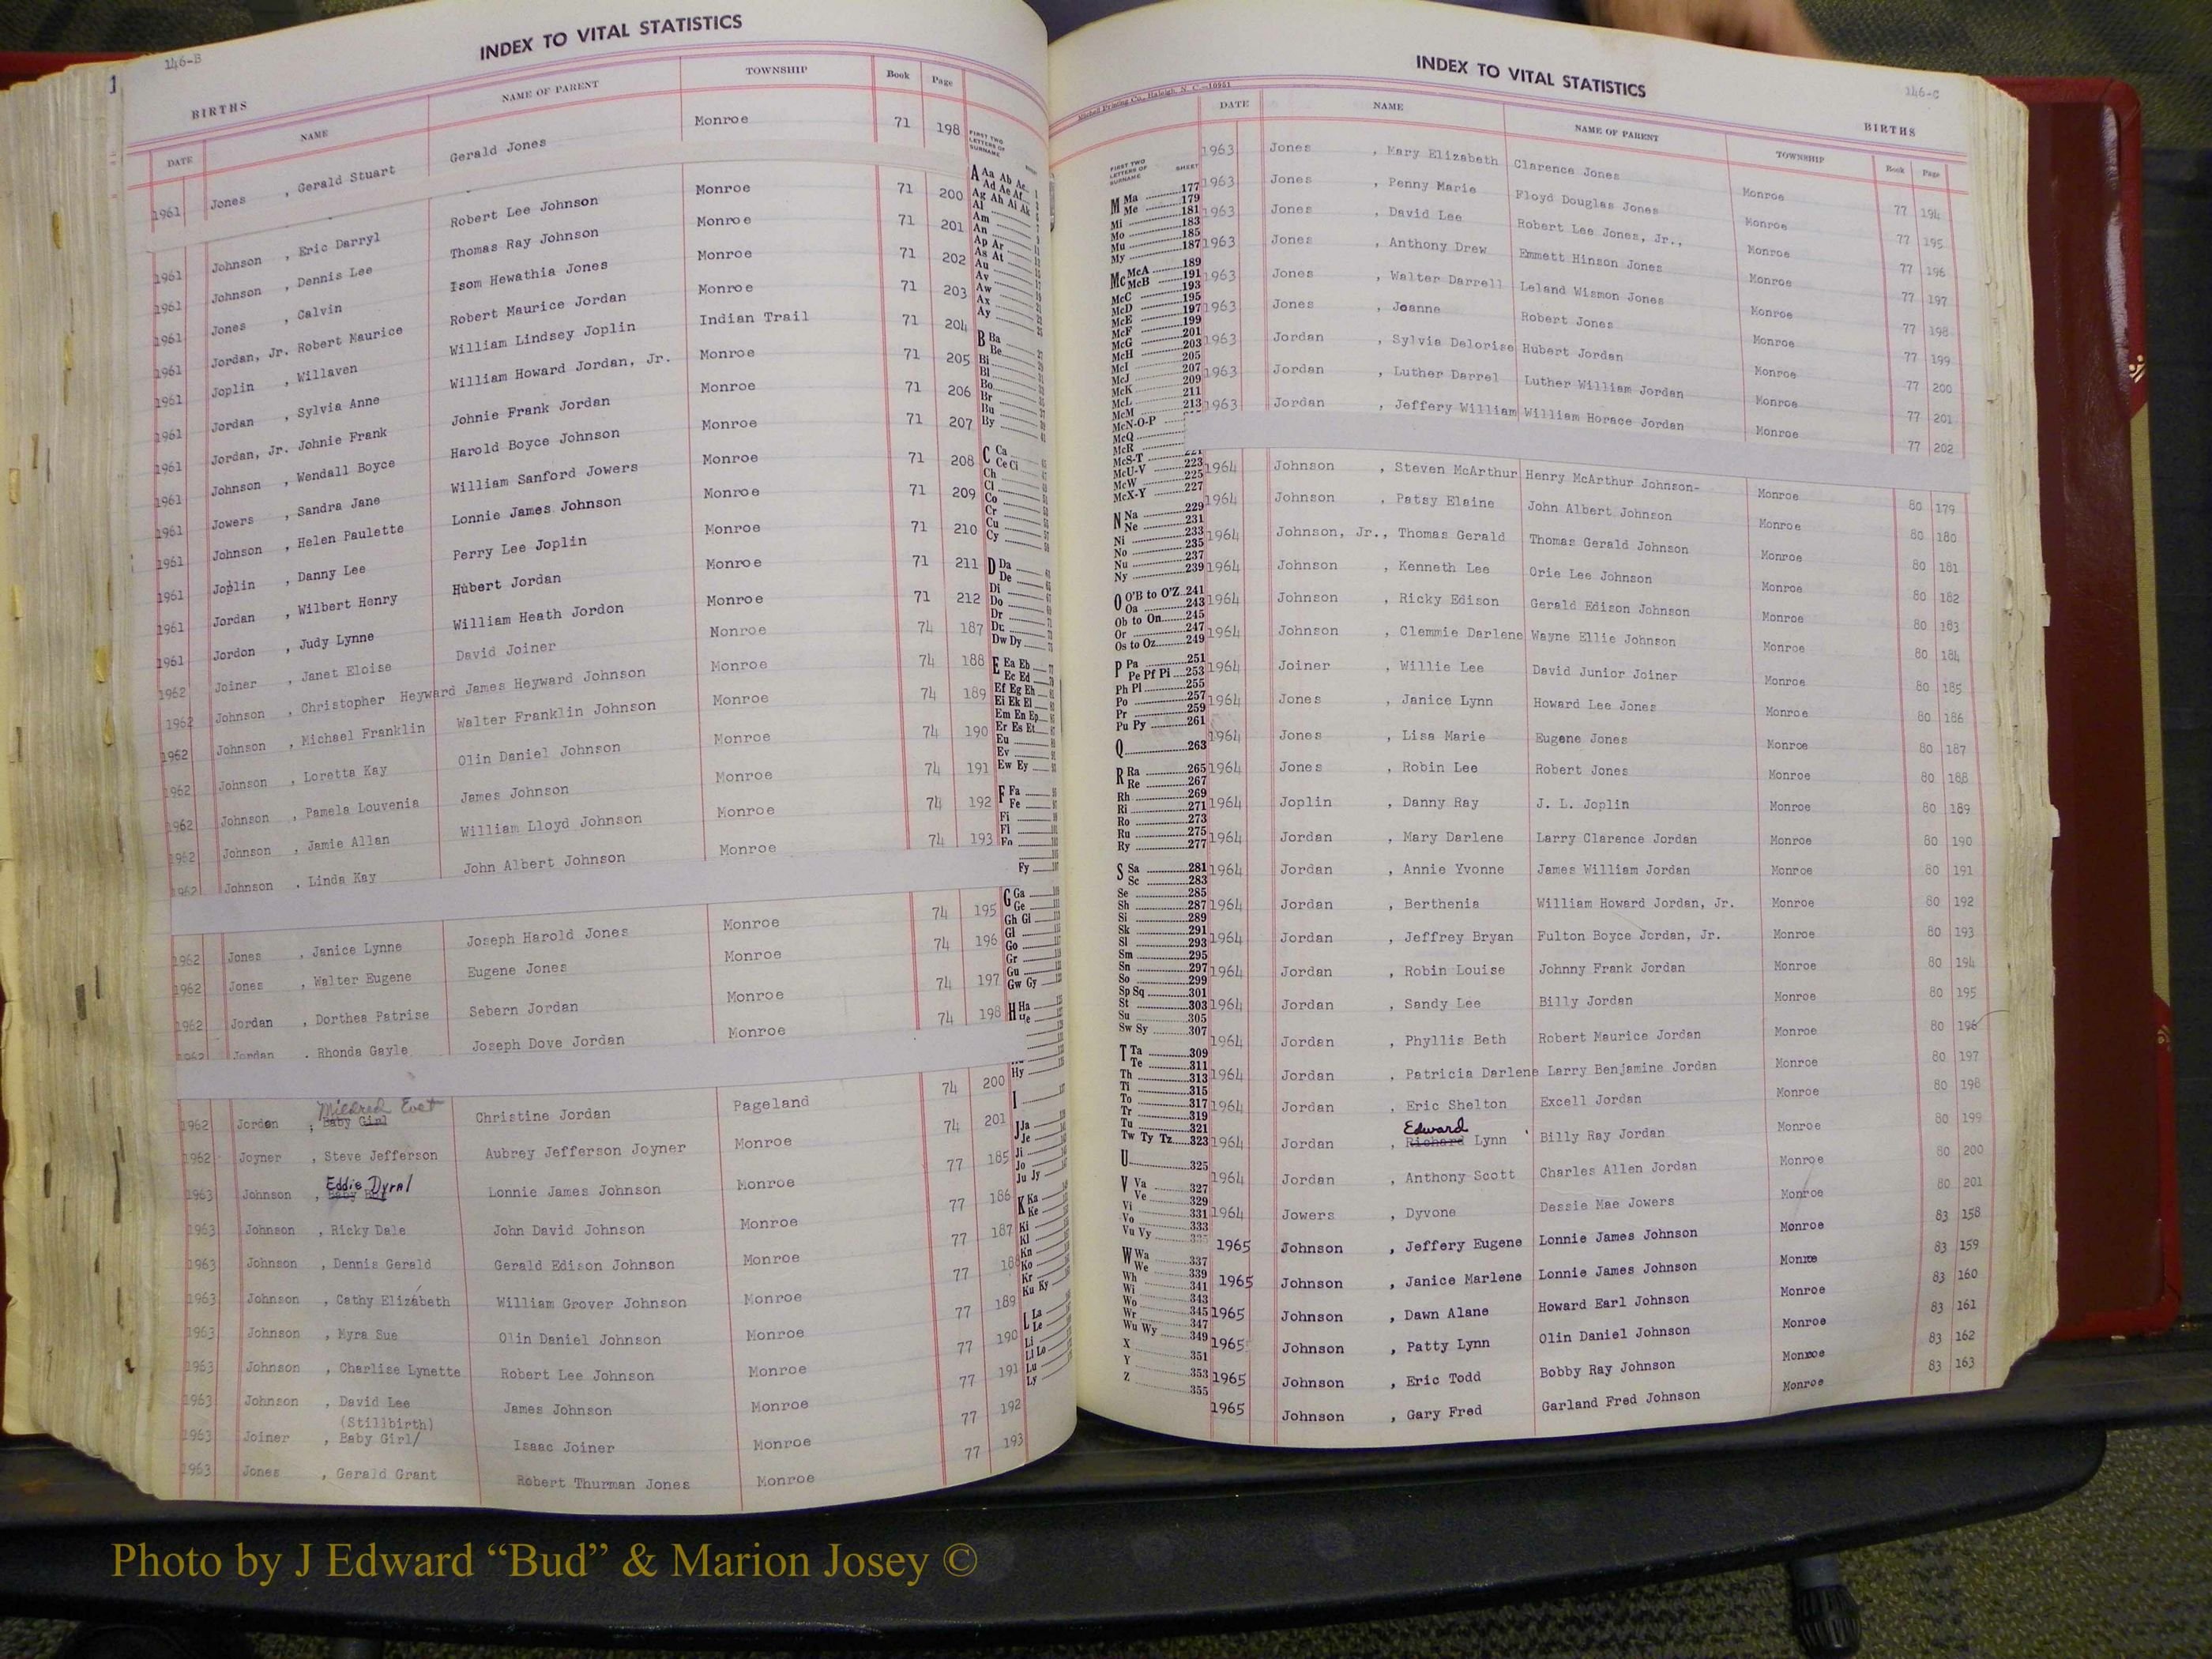 146-B
INDEX TO VITAL STATISTICS
BIRTHS
DATE NAME NAME OF PARENT TOWNSHIP Book Page
1961 Jones , Gerald Stuart Gerald Jones Monroe 71 198
1961 Johnson , Eric Darryl Robert Lee Johnson Monroe 71 200
1961 Johnson , Dennis Lee Thomas Ray Johnson Monroe 71 201
1961 Jones , Calvin Isom Hewathia Jones Monroe 71 202
1961 Jordan, Jr. Robert Maurice Robert Maurice Jordan Monroe 71 203
1961 Joplin , Willaven William Lindsey Joplin Indian Trail 71 204
1961 Jordan , Sylvia Anne William Howard Jordan, Jr. Monroe 71 205
1961 Jordan, Jr. Johnie Frank Johnie Frank Jordan Monroe 71 206
1961 Johnson , Wendall Boyce Harold Boyce Johnson Monroe 71 207
1961 Jowers , Sandra Jane William Sanford Jowers Monroe 71 208
1961 Johnson , Helen Paulette Lonnie James Johnson Monroe 71 209
1961 Joplin , Danny Lee Perry Lee Joplin Monroe 71 210
1961 Jordan , Wilbert Henry Hubert Jordan Monroe 71 211
1961 Jordon , Judy Lynne William Heath Jordon Monroe 71 212
1962 Joiner , Janet Eloise David Joiner Nonroe 74 187
1962 Johnson , Christopher Heyward James Heyward Johnson Monroe 74 188
1962 Johnson , Michael Franklin Walter Franklin Johnson Monroe 74 189
1962 Johnson , Loretta Kay Olin Daniel Johnson Monroe 74 190
1962 Johnson , Pamela Louvenia James Johnson Monroe 74 191
1962 Johnson , Jamie Allan William Lloyd Johnson Monroe 74 192
1962 Johnson , Linda Kay John Albert Johnson Monroe 74 193
1962 Jones , Janice Lynne Joseph Harold Jones Monroe 74 195
1962 Jones , Walter Eugene Eugene Jones Monroe 74 196
1962 Jordan , Dorthea Patrise Sebern Jordan Monroe 74 197
1962 Jordan , Rhonda Gayle Joseph Dove Jordan Monroe 74 198
Mildred Evet
1962 Jordan , Baby Girl Christine Jordan Pageland 74 200
1962 Joyner , Steve Jefferson Aubrey Jefferson Joyner Monroe 74 201
Eddie Dyral
1963 Johnson , Baby Boy Lonnie James Johnson Monroe 77 185
1963 Johnson , Ricky Dale John David Johnson Monroe 77 186
1963 Johnson , Dennis Gerald Gerald Edison Johnson Monroe 77 187
1963 Johnson , Cathy Elizabeth William Grover Johnson Monroe 77 188
1963 Johnson , Myra Sue Olin Daniel Johnson Monroe 77 189
1963 Johnson , Charlise Lynette Robert Lee Johnson Monroe 77 190
1963 Johnson , David Lee James Johnson Monroe 77 191
(Stillbirth)
1963 Joiner , Baby Girl/ Isaac Joiner Monroe 77 192
1963 Jones , Gerald Grant Robert Thurman Jones Monroe 77 193
FIRST TWO LETTERS OF SURNAME
A Aa Ab Ac
Ad Ae Af
Ag Ah Ai Ak
Al
Am
An
Ap Ar
As At
Au
Av
Aw
Ax
Ay
B Ba
Be
Bi
Bl
Bo
Br
Bu
By
C Ca
Ce Ci
Ch
Cl
Co
Cr
Cu
Cy
D Da
De
Di
Do
Dr
Du
Dw Dy
E Ea Eb
Ec Ed
Ef Eg Eh
Ei Ek El
Em En Ep
Er Es Et
Eu
Ev
Ew Ey
F Fa
Fe
Fi
Fl
Fo
Fy
G Ga
Ge
Gh Gi
Gl
Go
Gr
Gu
Gw Gy
H Ha
He
Hy
I
J Ja
Je
Ji
Jo
Ju Jy
K Ka
Ke
Ki
Kl
Kn
Ko
Kr
Ku Ky
L La
Le
Li
Ll Lo
Lu
Ly
146-C
INDEX TO VITAL STATISTICS
BIRTHS
Mitchell Printing Co., Raleigh, N. C.—10951
DATE NAME NAME OF PARENT TOWNSHIP Book Page
1963 Jones , Mary Elizabeth Clarence Jones Monroe 77 194
1963 Jones , Penny Marie Floyd Douglas Jones Monroe 77 195
1963 Jones , David Lee Robert Lee Jones, Jr., Monroe 77 196
1963 Jones , Anthony Drew Emmett Hinson Jones Monroe 77 197
1963 Jones , Walter Darrell Leland Wismon Jones Monroe 77 198
1963 Jones , Joanne Robert Jones Monroe 77 199
1963 Jordan , Sylvia Delorise Hubert Jordan Monroe 77 200
1963 Jordan , Luther Darrel Luther William Jordan Monroe 77 201
1963 Jordan , Jeffery William William Horace Jordan Monroe 77 202
1964 Johnson , Steven McArthur Henry McArthur Johnson- Monroe 80 179
1964 Johnson , Patsy Elaine John Albert Johnson Monroe 80 180
1964 Johnson, Jr., Thomas Gerald Thomas Gerald Johnson Monroe 80 181
1964 Johnson , Kenneth Lee Orie Lee Johnson Monroe 80 182
1964 Johnson , Ricky Edison Gerald Edison Johnson Monroe 80 183
1964 Johnson , Clemmie Darlene Wayne Ellie Johnson Monroe 80 184
1964 Joiner , Willie Lee David Junior Joiner Monroe 80 185
1964 Jones , Janice Lynn Howard Lee Jones Monroe 80 186
1964 Jones , Lisa Marie Eugene Jones Monroe 80 187
1964 Jones , Robin Lee Robert Jones Monroe 80 188
1964 Joplin , Danny Ray J. L. Joplin Monroe 80 189
1964 Jordan , Mary Darlene Larry Clarence Jordan Monroe 80 190
1964 Jordan , Annie Yvonne James William Jordan Monroe 80 191
1964 Jordan , Berthenia William Howard Jordan, Jr. Monroe 80 192
1964 Jordan , Jeffrey Bryan Fulton Boyce Jordan, Jr. Monroe 80 193
1964 Jordan , Robin Louise Johnny Frank Jordan Monroe 80 194
1964 Jordan , Sandy Lee Billy Jordan Monroe 80 195
1964 Jordan , Phyllis Beth Robert Maurice Jordan Monroe 80 196
1964 Jordan , Patricia Darlene Larry Benjamine Jordan Monroe 80 197
1964 Jordan , Eric Shelton Excell Jordan Monroe 80 198
Edward
1964 Jordan , Richard Lynn Billy Ray Jordan Monroe 80 199
1964 Jordan , Anthony Scott Charles Allen Jordan Monroe 80 200
1964 Jowers , Dyvone Dessie Mae Jowers Monroe 80 201
1965 Johnson , Jeffery Eugene Lonnie James Johnson Monroe 83 158
1965 Johnson , Janice Marlene Lonnie James Johnson Monroe 83 159
1965 Johnson , Dawn Alane Howard Earl Johnson Monroe 83 160
1965 Johnson , Patty Lynn Olin Daniel Johnson Monroe 83 161
1965 Johnson , Eric Todd Bobby Ray Johnson Monroe 83 162
1965 Johnson , Gary Fred Garland Fred Johnson Monroe 83 163
FIRST TWO LETTERS OF SURNAME SHEET
M Ma 177
Me 179
Mi 181
Mo 183
Mu 185
My 187
Mc McA 189
McB 191
McC 193
McD 195
McE 197
McF 199
McG 201
McH 203
McI 205
McJ 207
McK 209
McL 211
McM 213
McN-O-P
McQ
McR
McS-T 221
McU-V 223
McW 225
McX-Y 227
N Na 229
Ne 231
Ni 233
No 235
Nu 237
Ny 239
O O'B to O'Z 241
Oa 243
Ob to On 245
Or 247
Os to Oz 249
P Pa 251
Pe Pf Pi 253
Ph Pl 255
Po 257
Pr 259
Pu Py 261
Q 263
R Ra 265
Re 267
Rh 269
Ri 271
Ro 273
Ru 275
Ry 277
S Sa 281
Sc 283
Se 285
Sh 287
Si 289
Sk 291
Sl 293
Sm 295
Sn 297
So 299
Sp Sq 301
St 303
Su 305
Sw Sy 307
T Ta 309
Te 311
Th 313
Ti 315
To 317
Tr 319
Tu 321
Tw Ty Tz 323
U 325
V Va 327
Ve 329
Vi 331
Vo 333
Vu Vy 335
W Wa 337
We 339
Wh 341
Wi 343
Wo 345
Wr 347
Wu Wy 349
X 351
Y 353
Z 355
Photo by J Edward “Bud” & Marion Josey ©